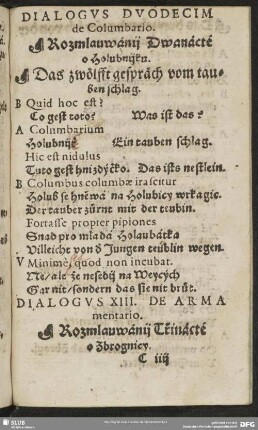 DIALOGVS DVODECIM
de Columbario.
Rozmlauwánij Dwanácté
o Holubnijku.
Das zwölfft gespräch vom tau-
ben schlag.
B Quid hoc est?
Co gest toto? Was ist das?
A Columbarium
Holubnijk Ein tauben schlag.
Hic est nidulus
Tuto gest hnizdýčko. Das ists nestlein.
B Columbus columbæ irascitur
Holub se hněwá na Holubicy wrkagic.
Der tauber zürnt mit der teubin.
Fortasse propter pipiones
Snad pro mladá Holaubátka
Villeicht von ď Jungen teüblin wegen.
V Minime, quod non incubat.
Ne/ ale že nesedij na Weycých
Gar nit/ sondern das sie nit brüt.
DIALOGVS XIII. DE ARMA
mentario.
Rozmlauwánij Třinácté
o Zbrognicy.
C iiij